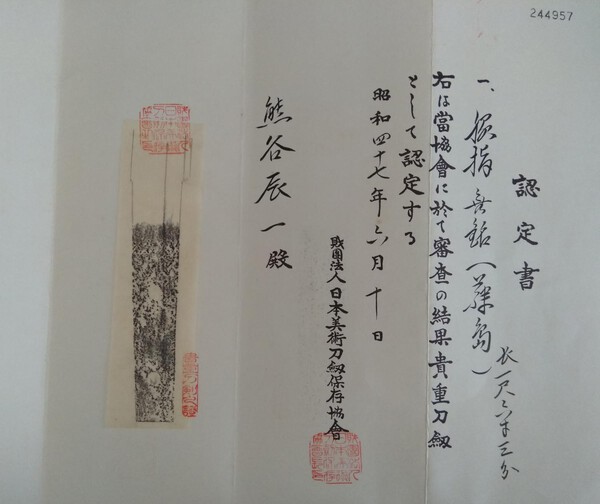 244957
認定書
一、脇指 無銘(藤島)
長一尺六寸三分
右は當協會に於て審査の結果貴重刀劔
として認定する
昭和四十七年六月十日
財團法人日本美術刀劔保存協會
熊谷辰一殿